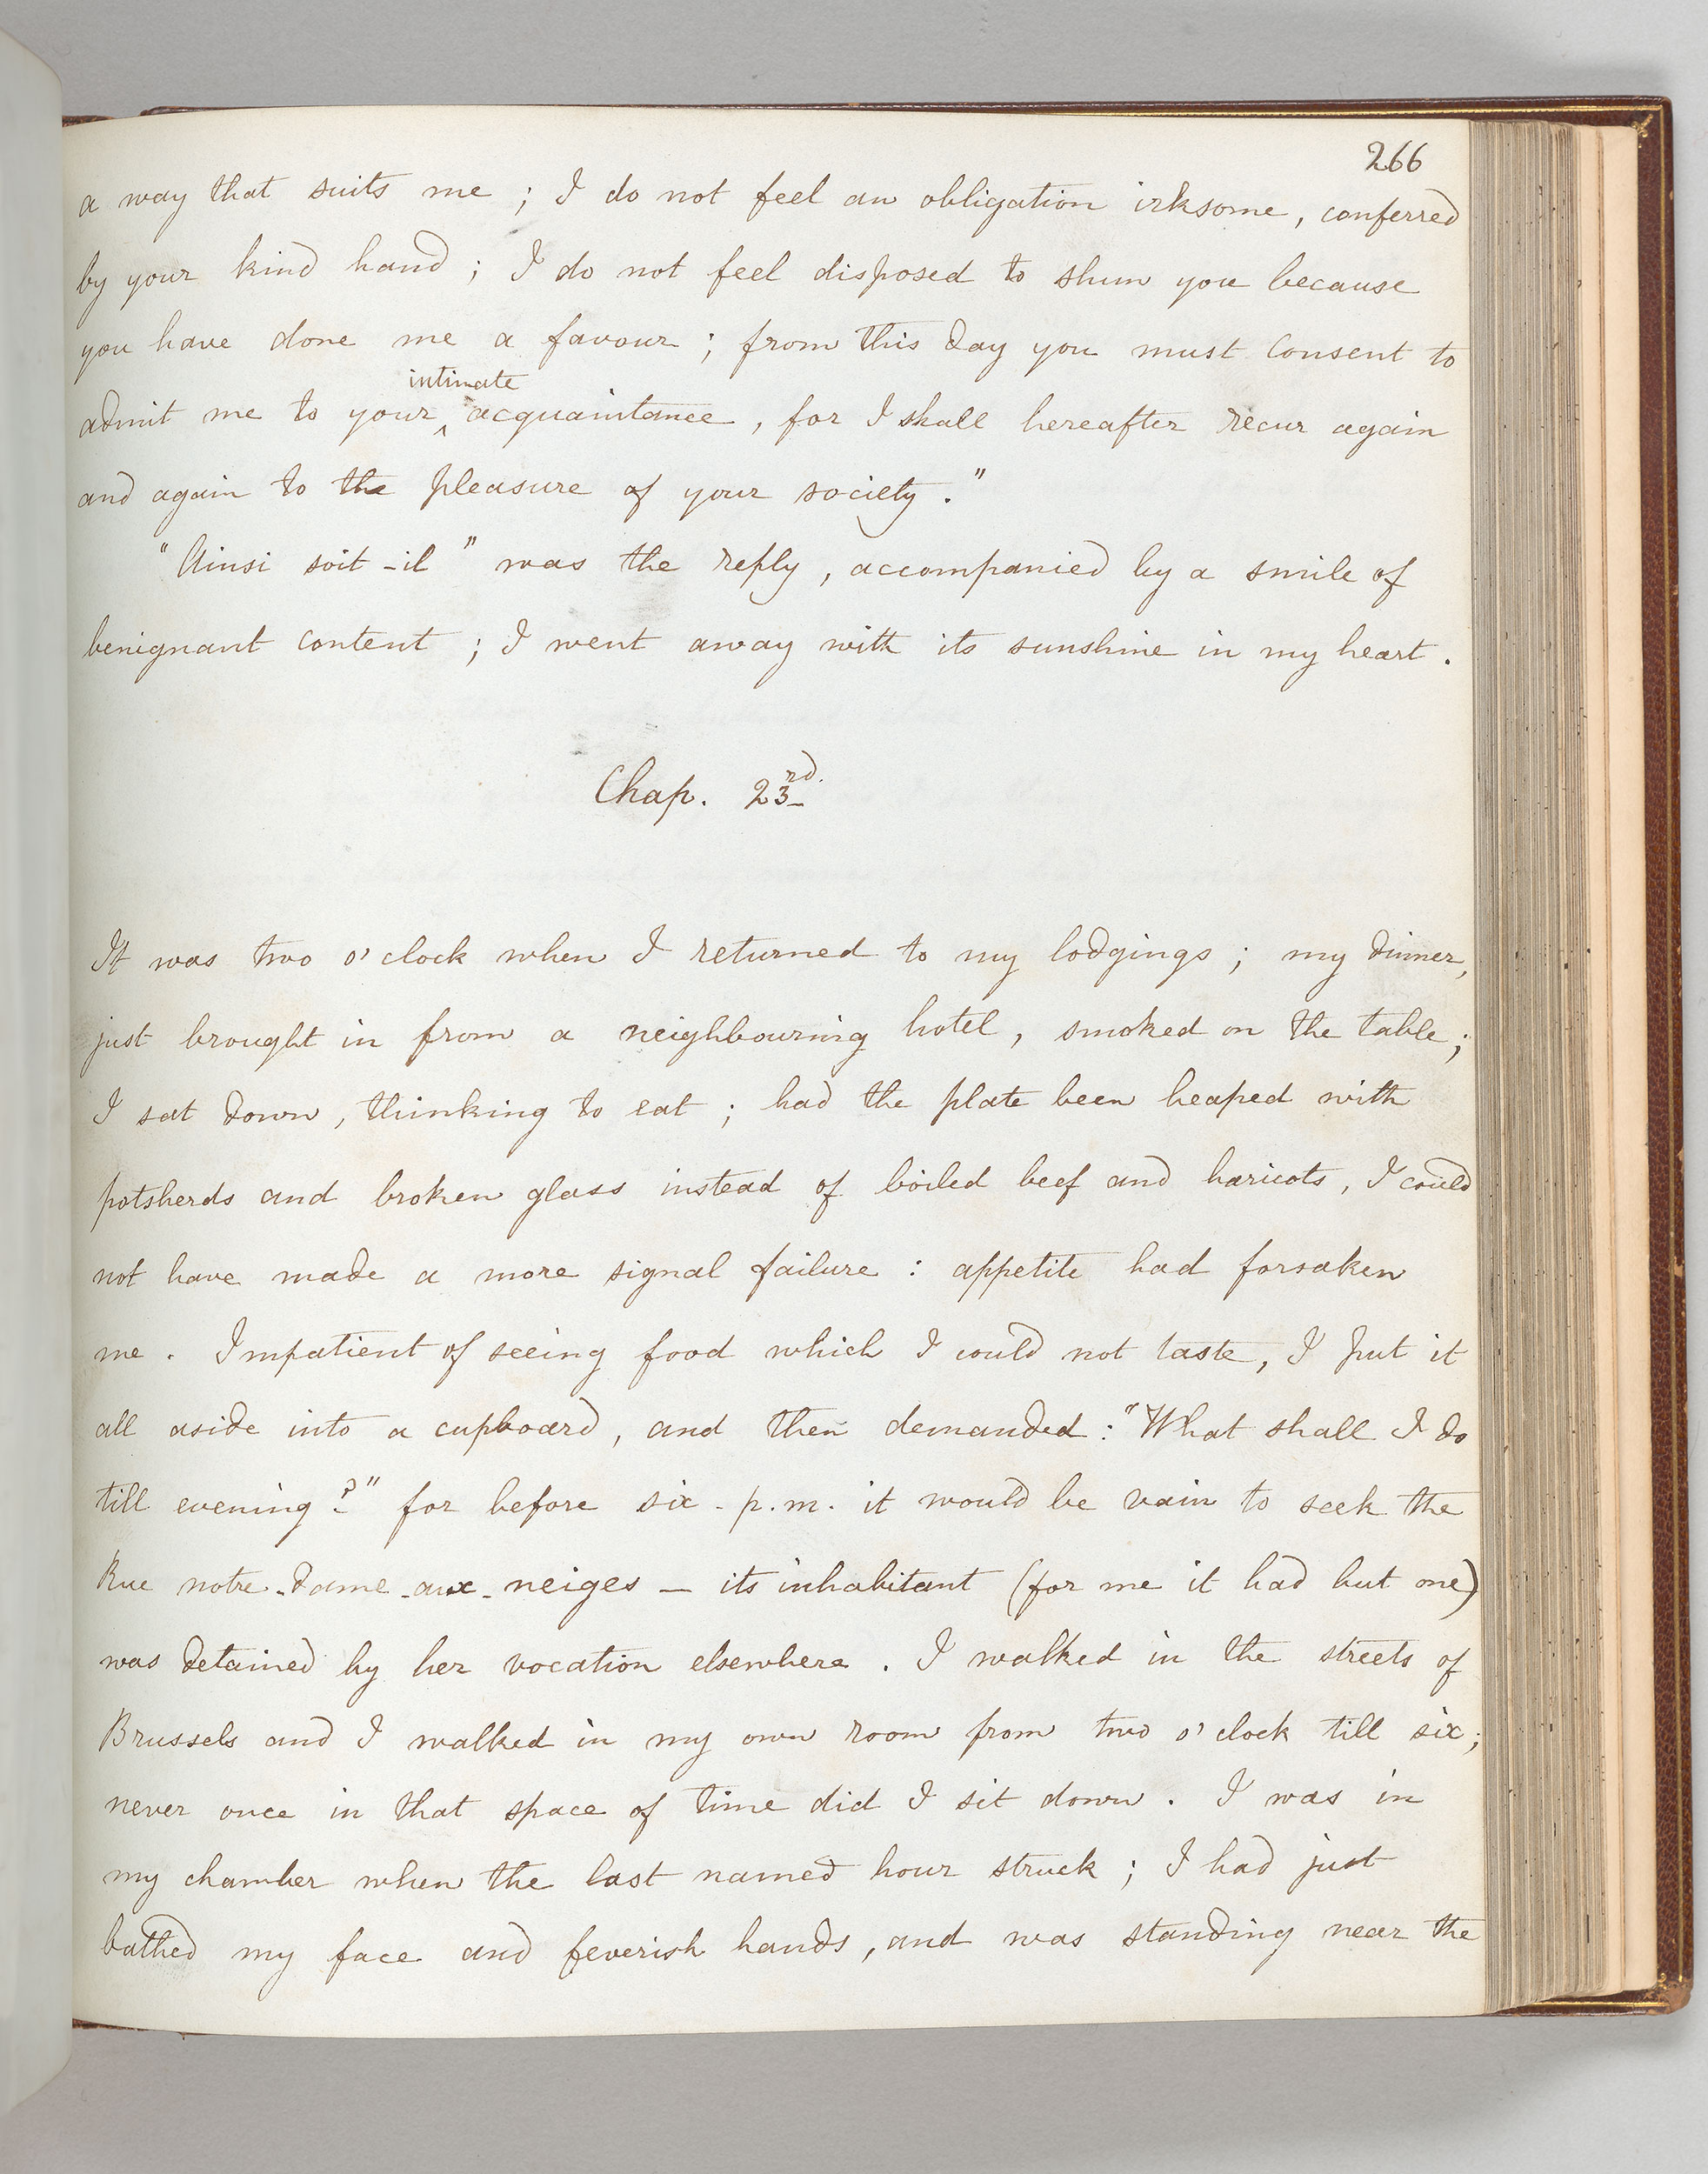 266
a way that suits me ; I do not feel an obligation irksome, conferred
by your kind hand ; I do not feel disposed to shun you because
you have done me a favour ; from this day you must consent to
intimate
admit me to your ‸ acquaintance, for I shall hereafter recur again
and again to the pleasure of your society."
"Ainsi soit-il" was the reply, accompanied by a smile of
benignant content ; I went away with its sunshine in my heart.
Chap. 23rd.
It was two o'clock when I returned to my lodgings ; my dinner,
just brought in from a neighbouring hotel, smoked on the table ;
I sat down, thinking to eat ; had the plate been heaped with
potsherds and broken glass instead of boiled beef and haricots, I could
not have made a more signal failure : appetite had forsaken
me. Impatient of seeing food which I could not taste, I put it
all aside into a cupboard, and then demanded : "What shall I do
till evening ?" for before six - p.m. it would be vain to seek the
Rue notre-Dame-aux-neiges — its inhabitant (for me it had but one)
was detained by her vocation elsewhere. I walked in the streets of
Brussels and I walked in my own room from two o'clock till six ;
never once in that space of time did I sit down. I was in
my chamber when the last named hour struck ; I had just
bathed my face and feverish hands, and was standing near the